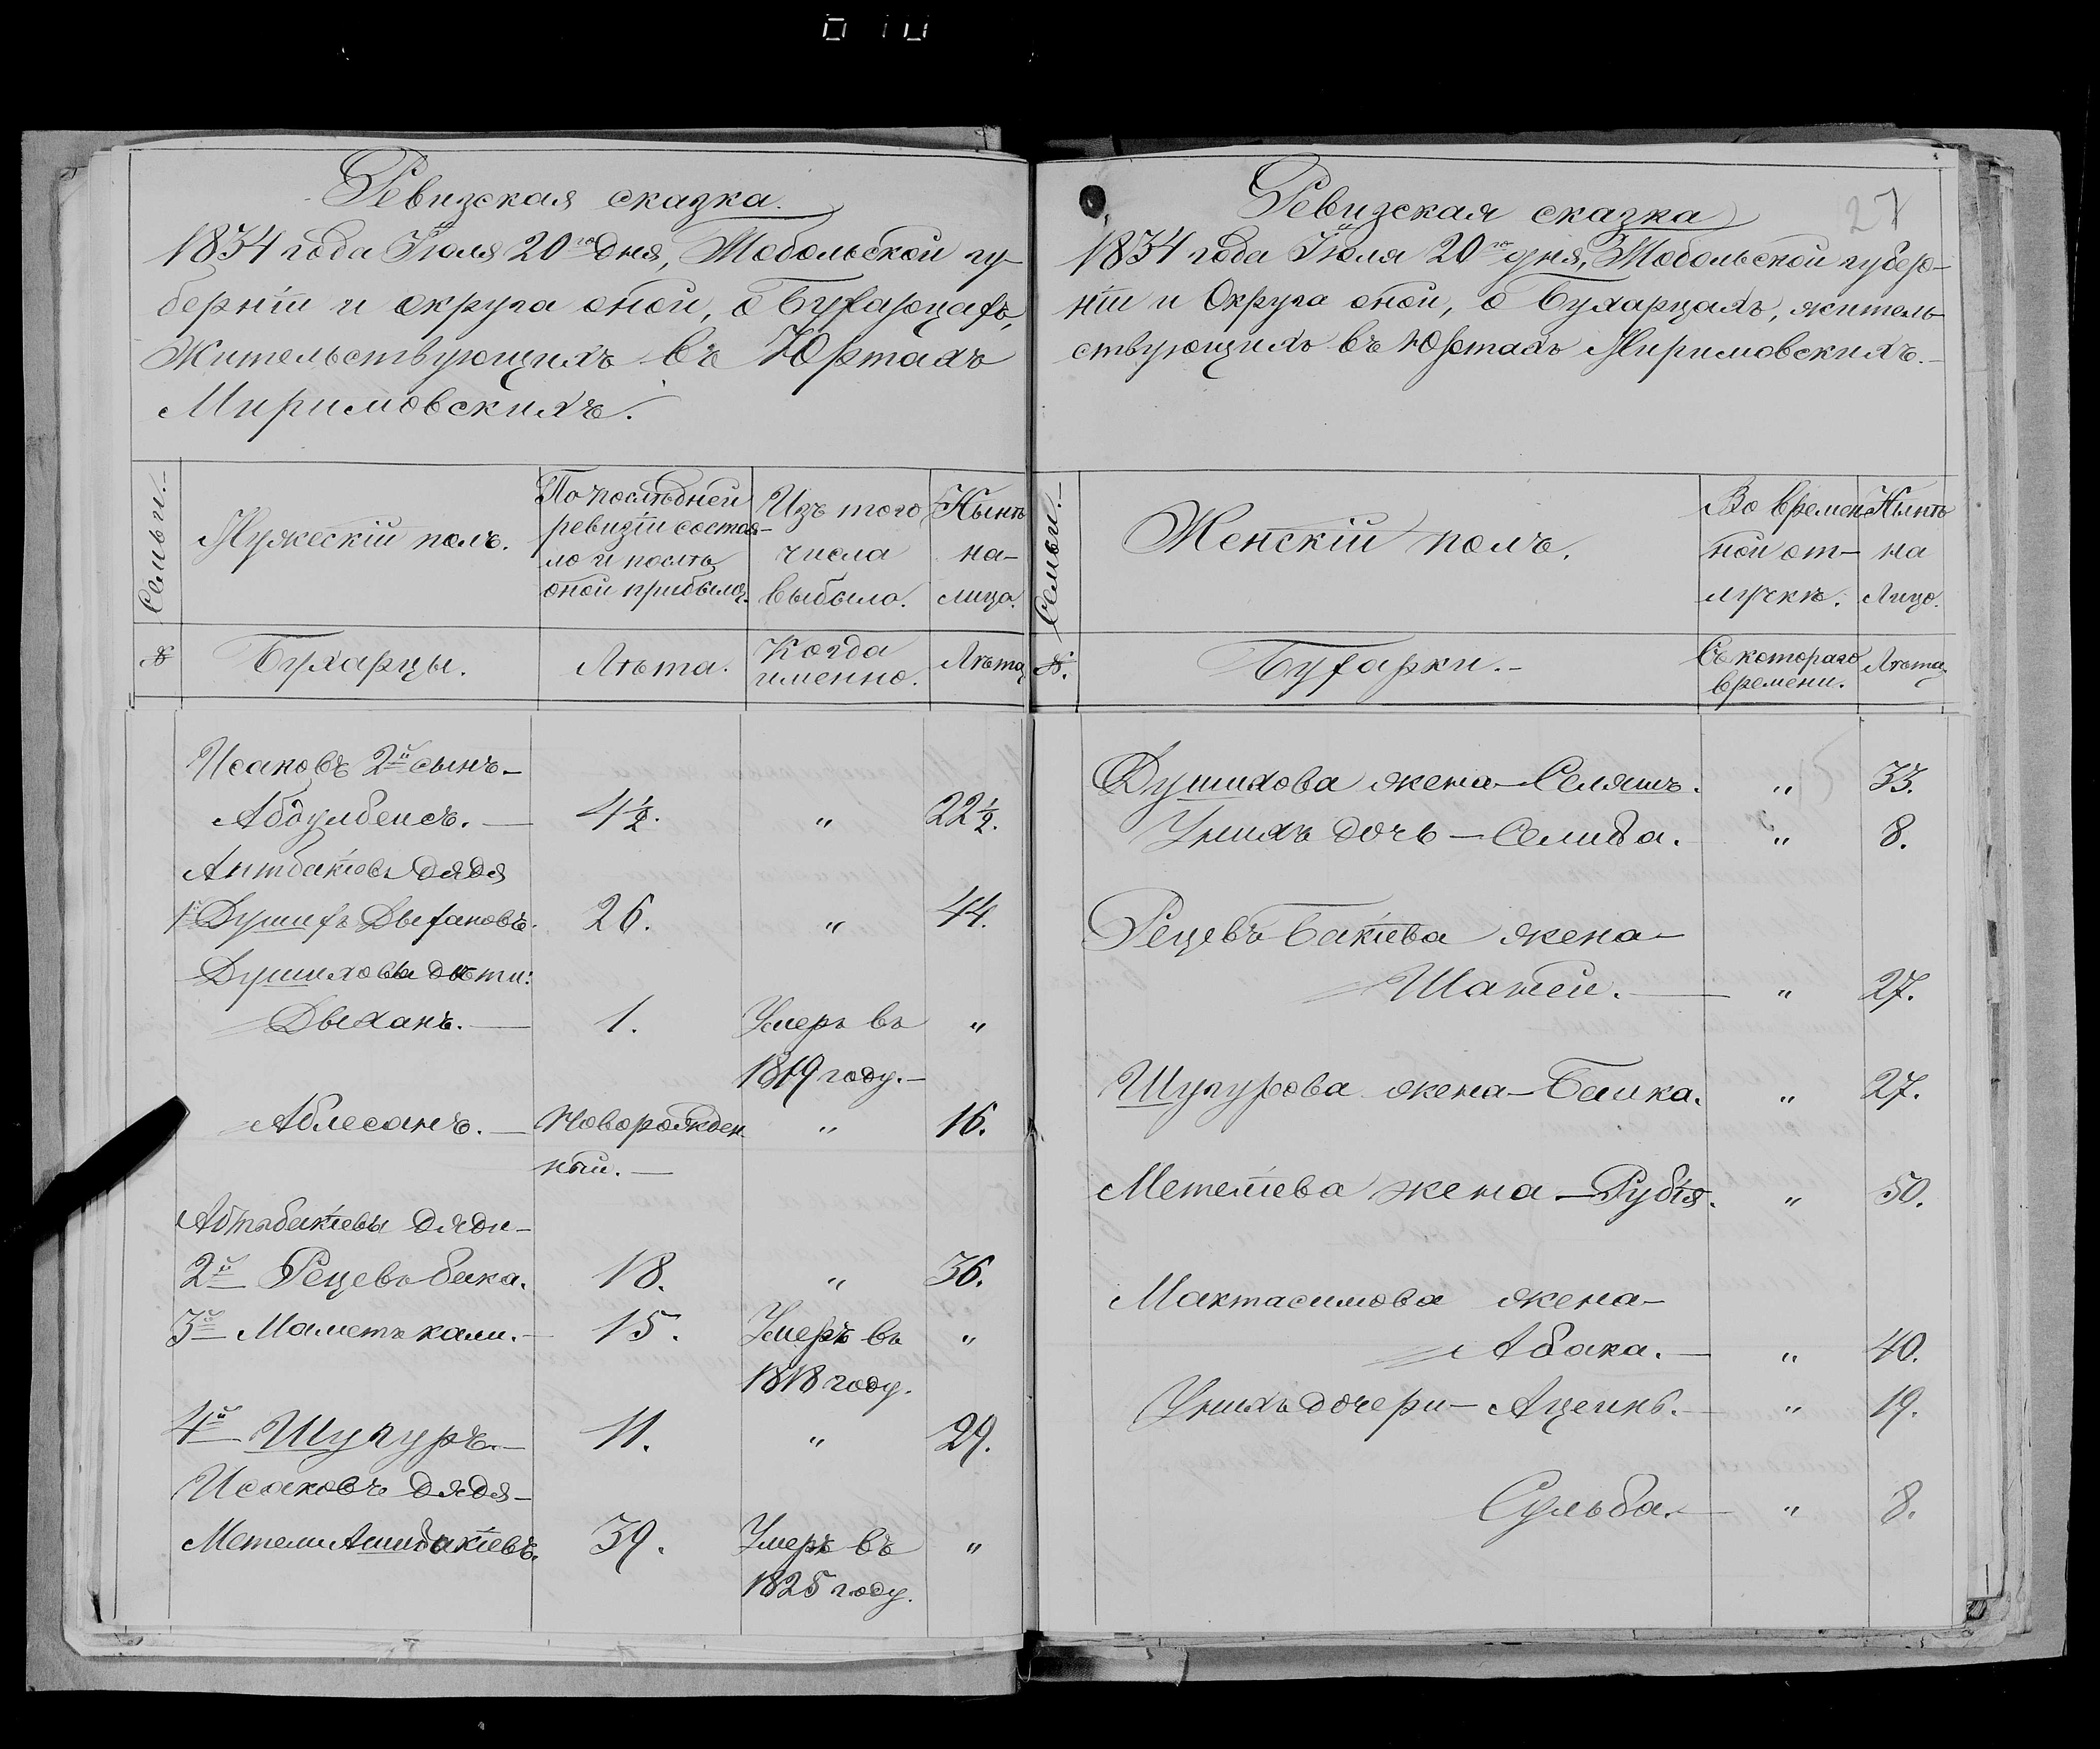 Ревизская сказка.
1834 года Іюля 20го дня, Тобольской гу-
берніи и округа оной, о Бухарцахъ,
Жительствующихъ въ Юртахъ
Миримовскихъ.
Семьи.
Мужескій полъ.
По послѣдней
ревизіи состоя-
ло и послѣ
оной прибыло.
Изъ того
числа
выбыло.
Нынѣ
на-
лицо.
№
Бухарцы.
Лѣта.
Когда
именно.
Лѣта
Исаковъ 2й сынъ-
Абдулбеисъ. — 4½. „ 22½.
дядя
1й Душихъ Дыхановъ. 26. „ 44.
Душиховы дѣти:
Дыханъ. — 1. Умеръ въ „
1819 году. —
Аблесанъ. — Новорожден „ 16.
ный. —
дяди-
2й Рецевъ бака. 18. „ 36.
3й Маметъ кали. — 15. Умеръ въ „
1818 году.
4й Шугуръ. — 11. „ 29.
Исаковъ дядя-
Метели Ашибакіевъ. 39. Умеръ въ „
1825 году.
Ревизская сказка
27
1834 года Іюля 20го дня, Тобольской губер-
ніи и Округа оной, о Бухарцахъ, житель-
ствующихъ въ Юртахъ Миримовскихъ. —
Семьи. —
Женскій полъ.
Во времен
ной от-
лучкѣ.
Нынѣ
на
Лицо.
№.
Бухарки. —
Съ котораго
времени.
Лѣта
Душихова жена — Селяшъ. „ 33.
У нихъ дочь — Селиба. „ 8.
Рецевъ Бакіева жена —
Шатеи. — „ 27.
Шугурова жена — Башка. „ 27.
Метеліева жена — Рубія. „ 50.
Мактасимова жена —
Абака. — „ 40.
У нихъ дочери — Ацеикъ. — „ 19.
Сульба. — „ 8.